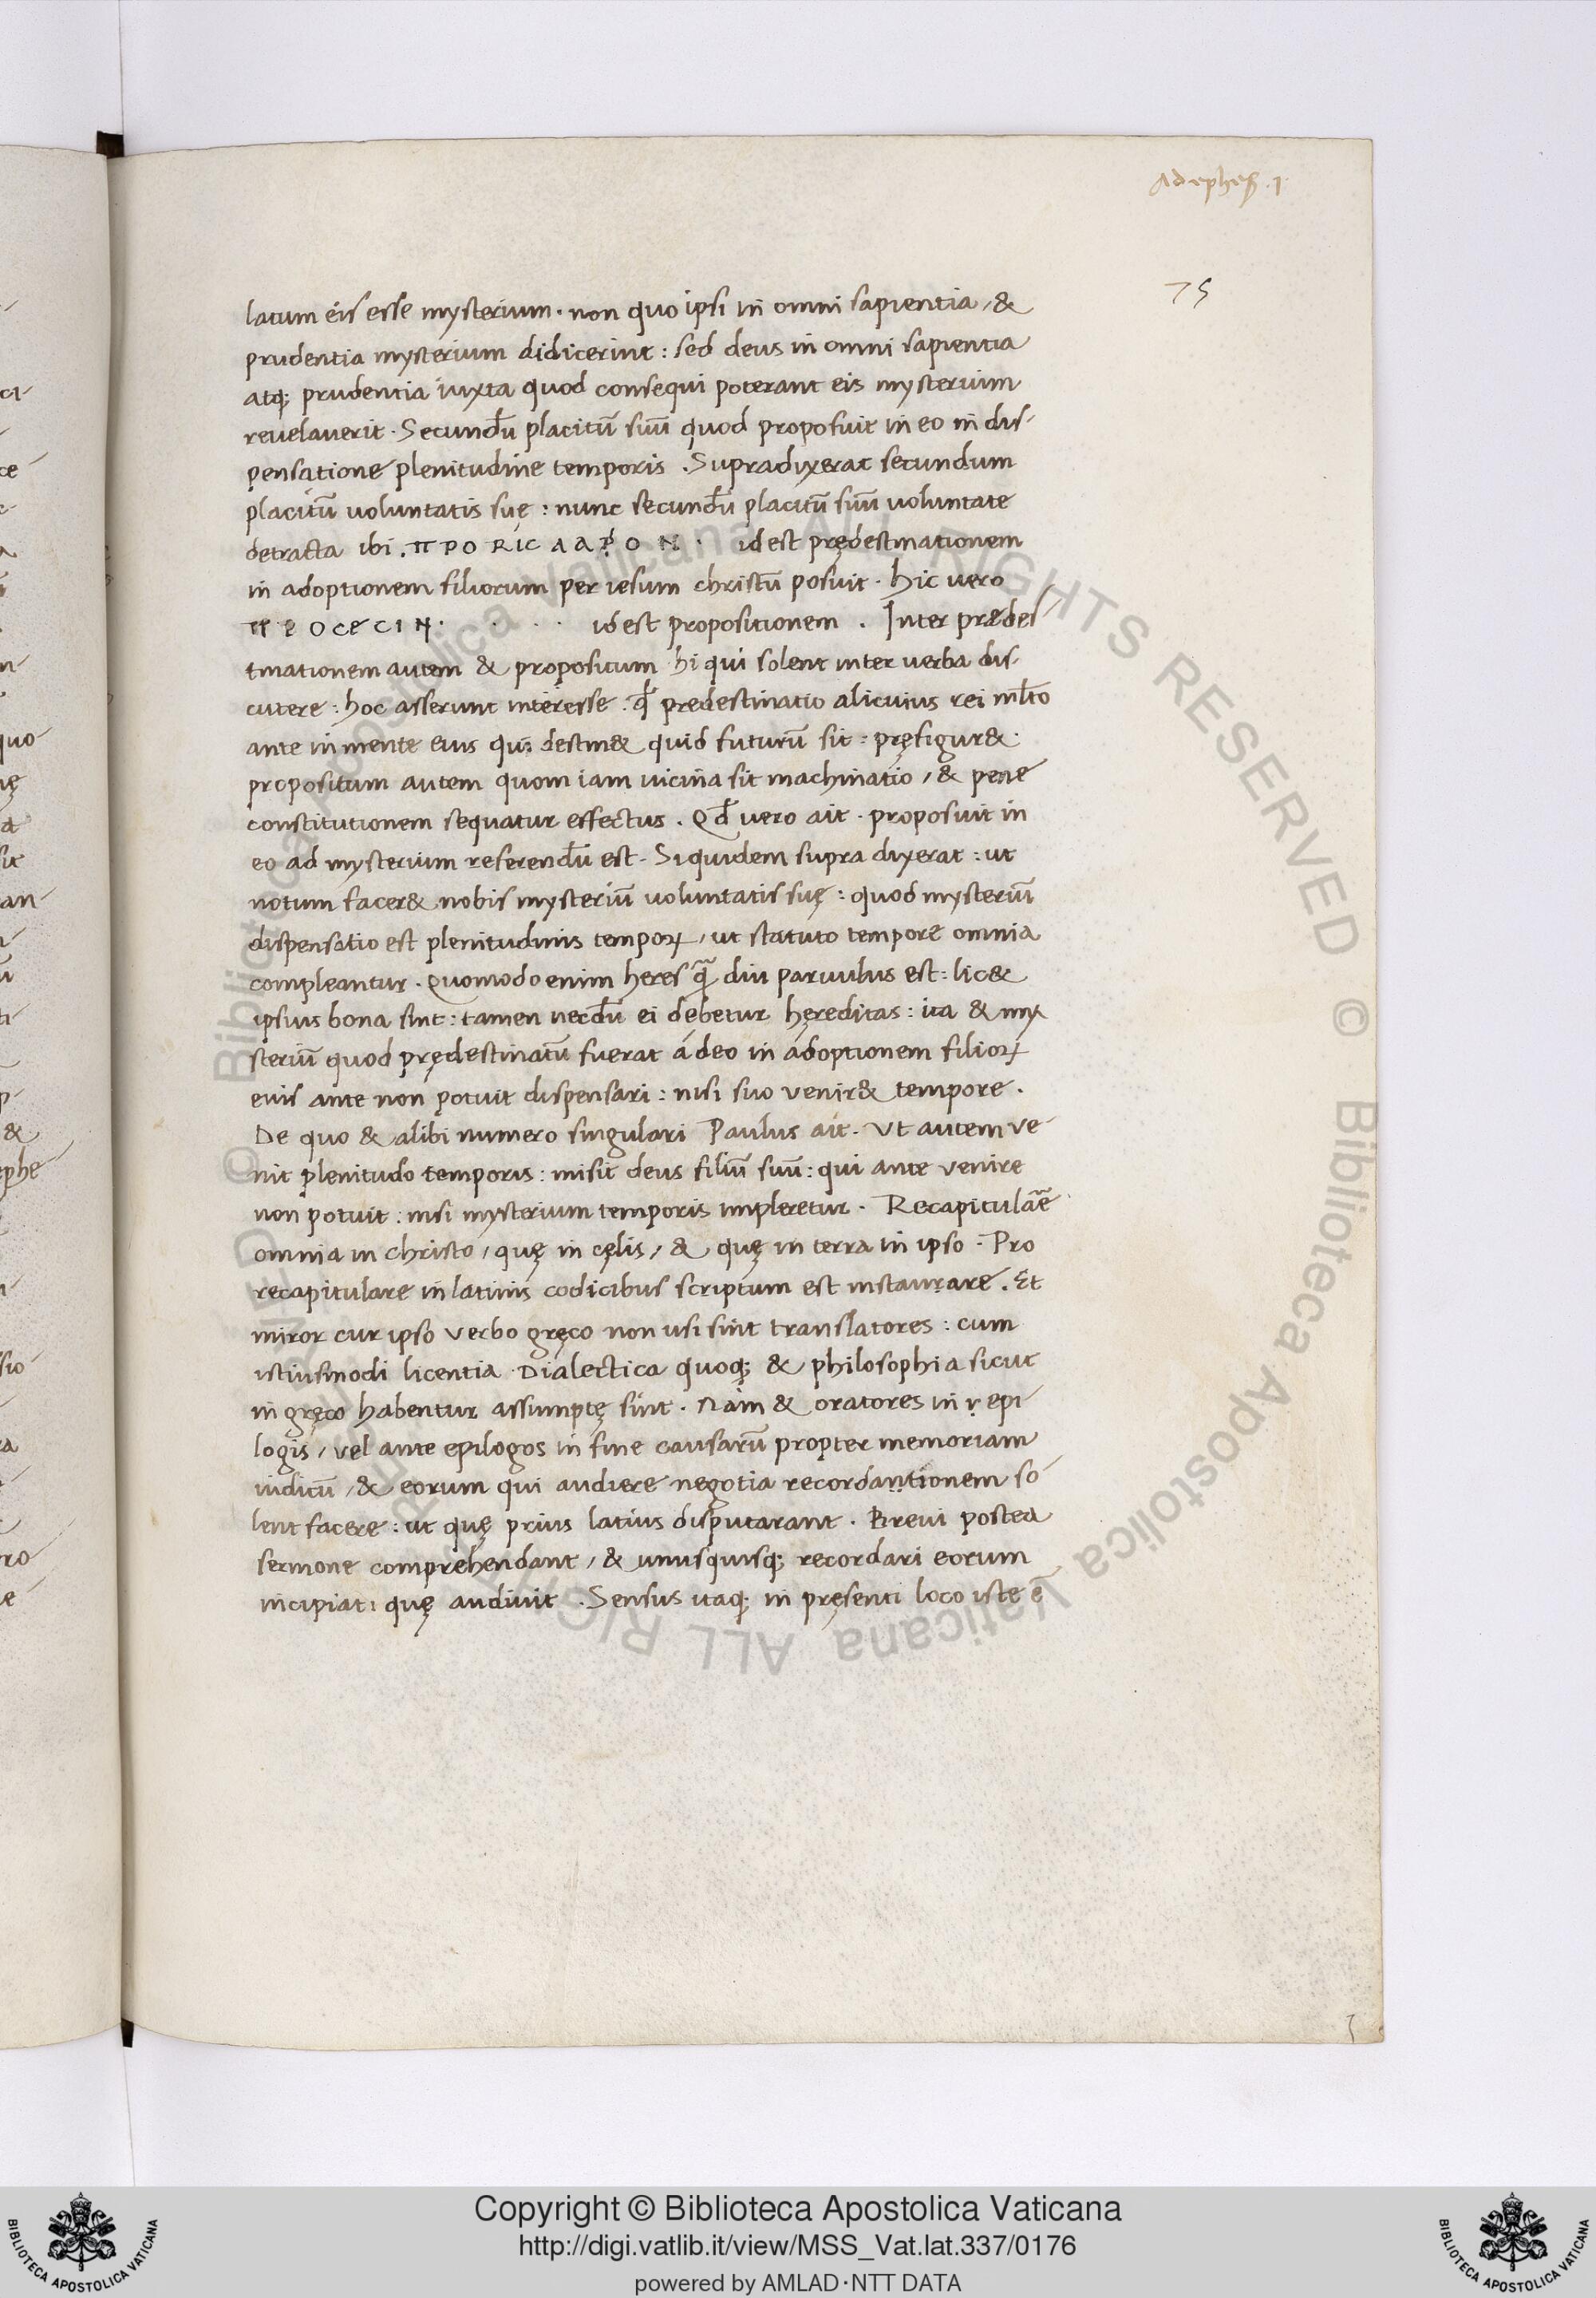 Ad ephes. 1
75
latum eis esse mysterium. non quo ipsi in omni sapientia, &
prudentia mysterium didicerint: sed deus in omni sapientia
atq; prudentia iuxta quod consequi poterant eis mysterium
reuelauerit. Secundū placitū suū quod proposuit in eo in dis-
pensatione plenitudine temporis. Supradixerat secundum
placitū uoluntatis suę: nunc secundū placitū suū uoluntate
detracta ibi. ΠΡΟRICΛΑΡΟΝ. id est prędestinationem
in adoptionem filiorum per iesum christū posuit. hic uero
ΠΡΟCЄCIN. . . . id est propositionem. Inter prædes-
tinationem autem & propositum hi qui solent inter uerba dis-
cutere: hoc asserunt interesse: qđ predestinatio alicuius rei ml̄to
ante in mente eius qui destin& quid futurū sit: pręfigur&.
propositum autem quom iam uicina sit machinatio, & pene
constitutionem sequatur effectus. Qđ uero ait. proposuit in
eo ad mysterium referendū est. Siquidem supra dixerat: ut
notum facer& nobis mysteriū uoluntatis suę: quod mysteriū
dispensatio est plenitudinis temporꝝ, ut statuto tempore omnia
compleantur. Quomodo enim heres q̄ diu paruulus est: lic&
ipsius bona sint: tamen necdū ei debetur hęreditas: ita & my
steriū quod prędestinatū fuerat á deo in adoptionem filioꝝ
eius ante non potuit dispensari: nisi suo venir& tempore.
De quo & alibi numero singulari Paulus ait. Vt autem ve-
nit plenitudo temporis: misit deus filiū suū: qui ante venire
non potuit: nisi mysterium temporis impleretur. Recapitulār̄e
omnia in christo, quę in cęlis, & quę in terra in ipso. Pro
recapitulare in latinis codicibus scriptum est instaurare. Et
miror cur ipso verbo gręco non usi sint translatores: cum
istiusmodi licentia Dialectica quoq; & philosophia sicut
in gręco habentur assumptę sint. Nam & oratores in ṿ epi-
logis, vel ante epilogos in fine causarū propter memoriam
iudicū, & eorum qui audiere negotia recordaṇtionem so-
lent facere: ut quę prius latius disputarant. Breui postea
sermone comprehendant, & unusquisq; recordari eorum
incipiat, quę audiuit. Sensus itaq; in pręsenti loco iste ē
Copyright © Biblioteca Apostolica Vaticana
http://digi.vatlib.it/view/MSS_Vat.lat.337/0176
powered by AMLAD·NTT DATA